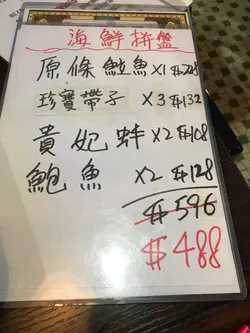 海鮮拼盤
原條 魚 x1 $228
珍寶帶子 x3 $132
貴妃蚌 x2 $108
鮑魚 x2 $128
$596
$488